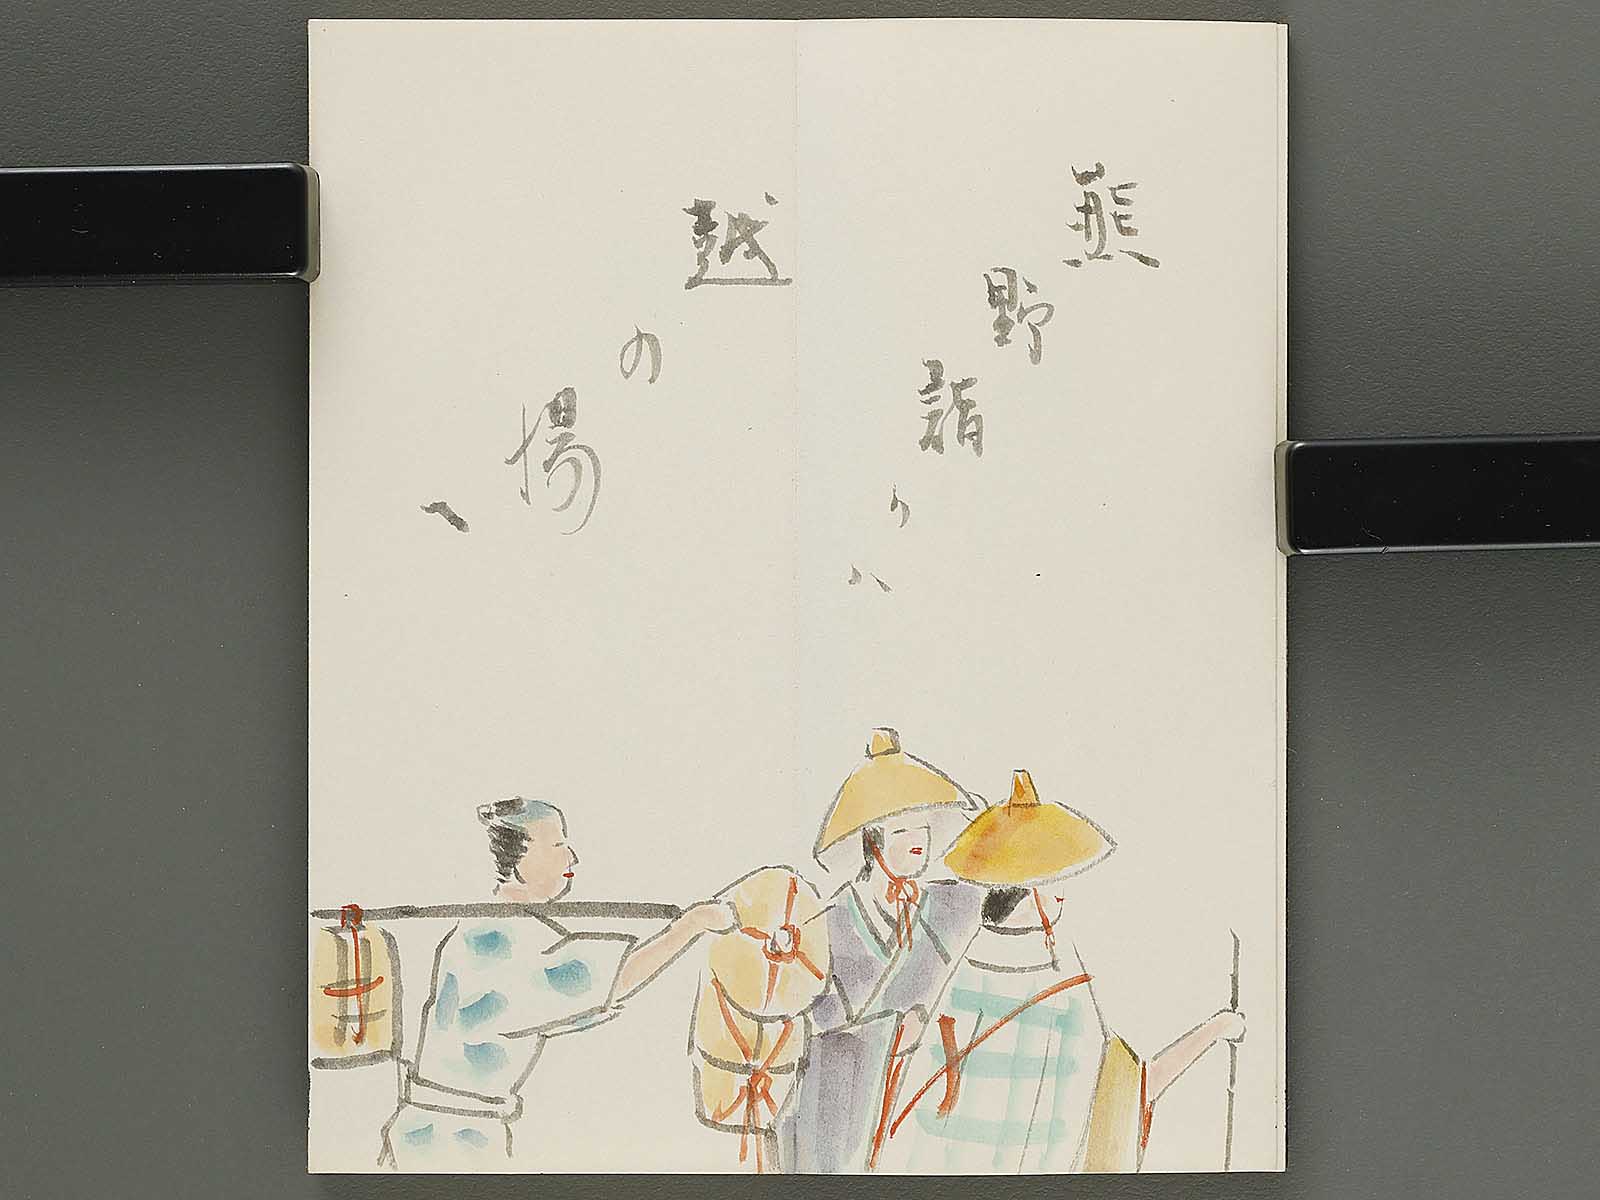 熊野詣りハ
越の湯へ